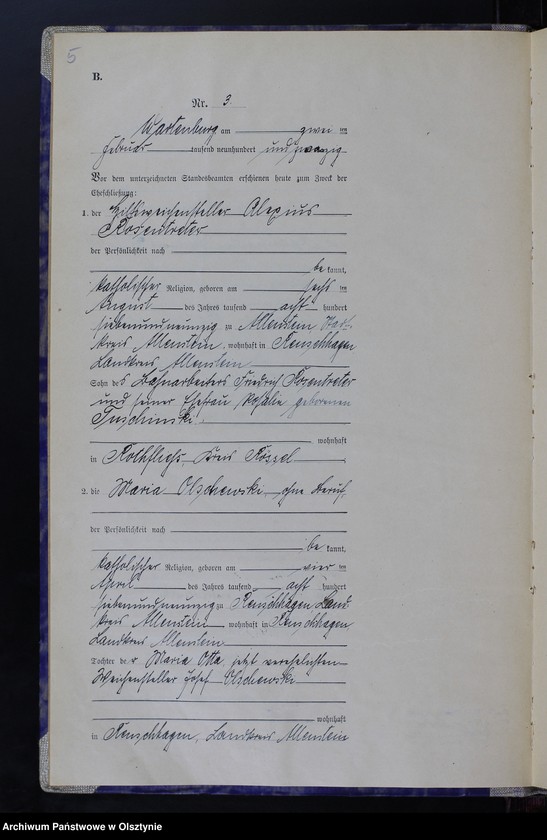 5
B.
Nr. 3.
Wartenburg am zwei ten
Februar tausend neunhundert undzwanzig
Vor dem unterzeichneten Standesbeamten erschienen heute zum Zweck der
Eheschließung:
1. der Hilfsweichensteller Alexius
Rosentreter
der Persönlichkeit nach
be kannt,
katholischer Religion, geboren am sechs ten
August des Jahres tausend acht hundert
siebenundneunzig zu Allenstein Stadt-
kreis Allenstein, wohnhaft in Reuschhagen
Landkreis Allenstein
Sohn des Bahnarbeiters Friedrich Rosentreter
und seiner Ehefrau Rosalie geborenen
wohnhaft
in Rothfließ Kreis Rössel
2. die Maria Olschewski, ohne Beruf
der Persönlichkeit nach
be kannt,
katholischer Religion, geboren am vier ten
April des Jahres tausend acht hundert
siebenundneunzig zu Reuschhagen Land-
kreis Allenstein wohnhaft in Reuschhagen
Landkreis Allenstein
Tochter der Maria Otta, jetzt verehelichten
Weichensteller Josef Olschewski
wohnhaft
in Reuschhagen, Landkreis Allenstein
Archiwum Państwowe w Olsztynie